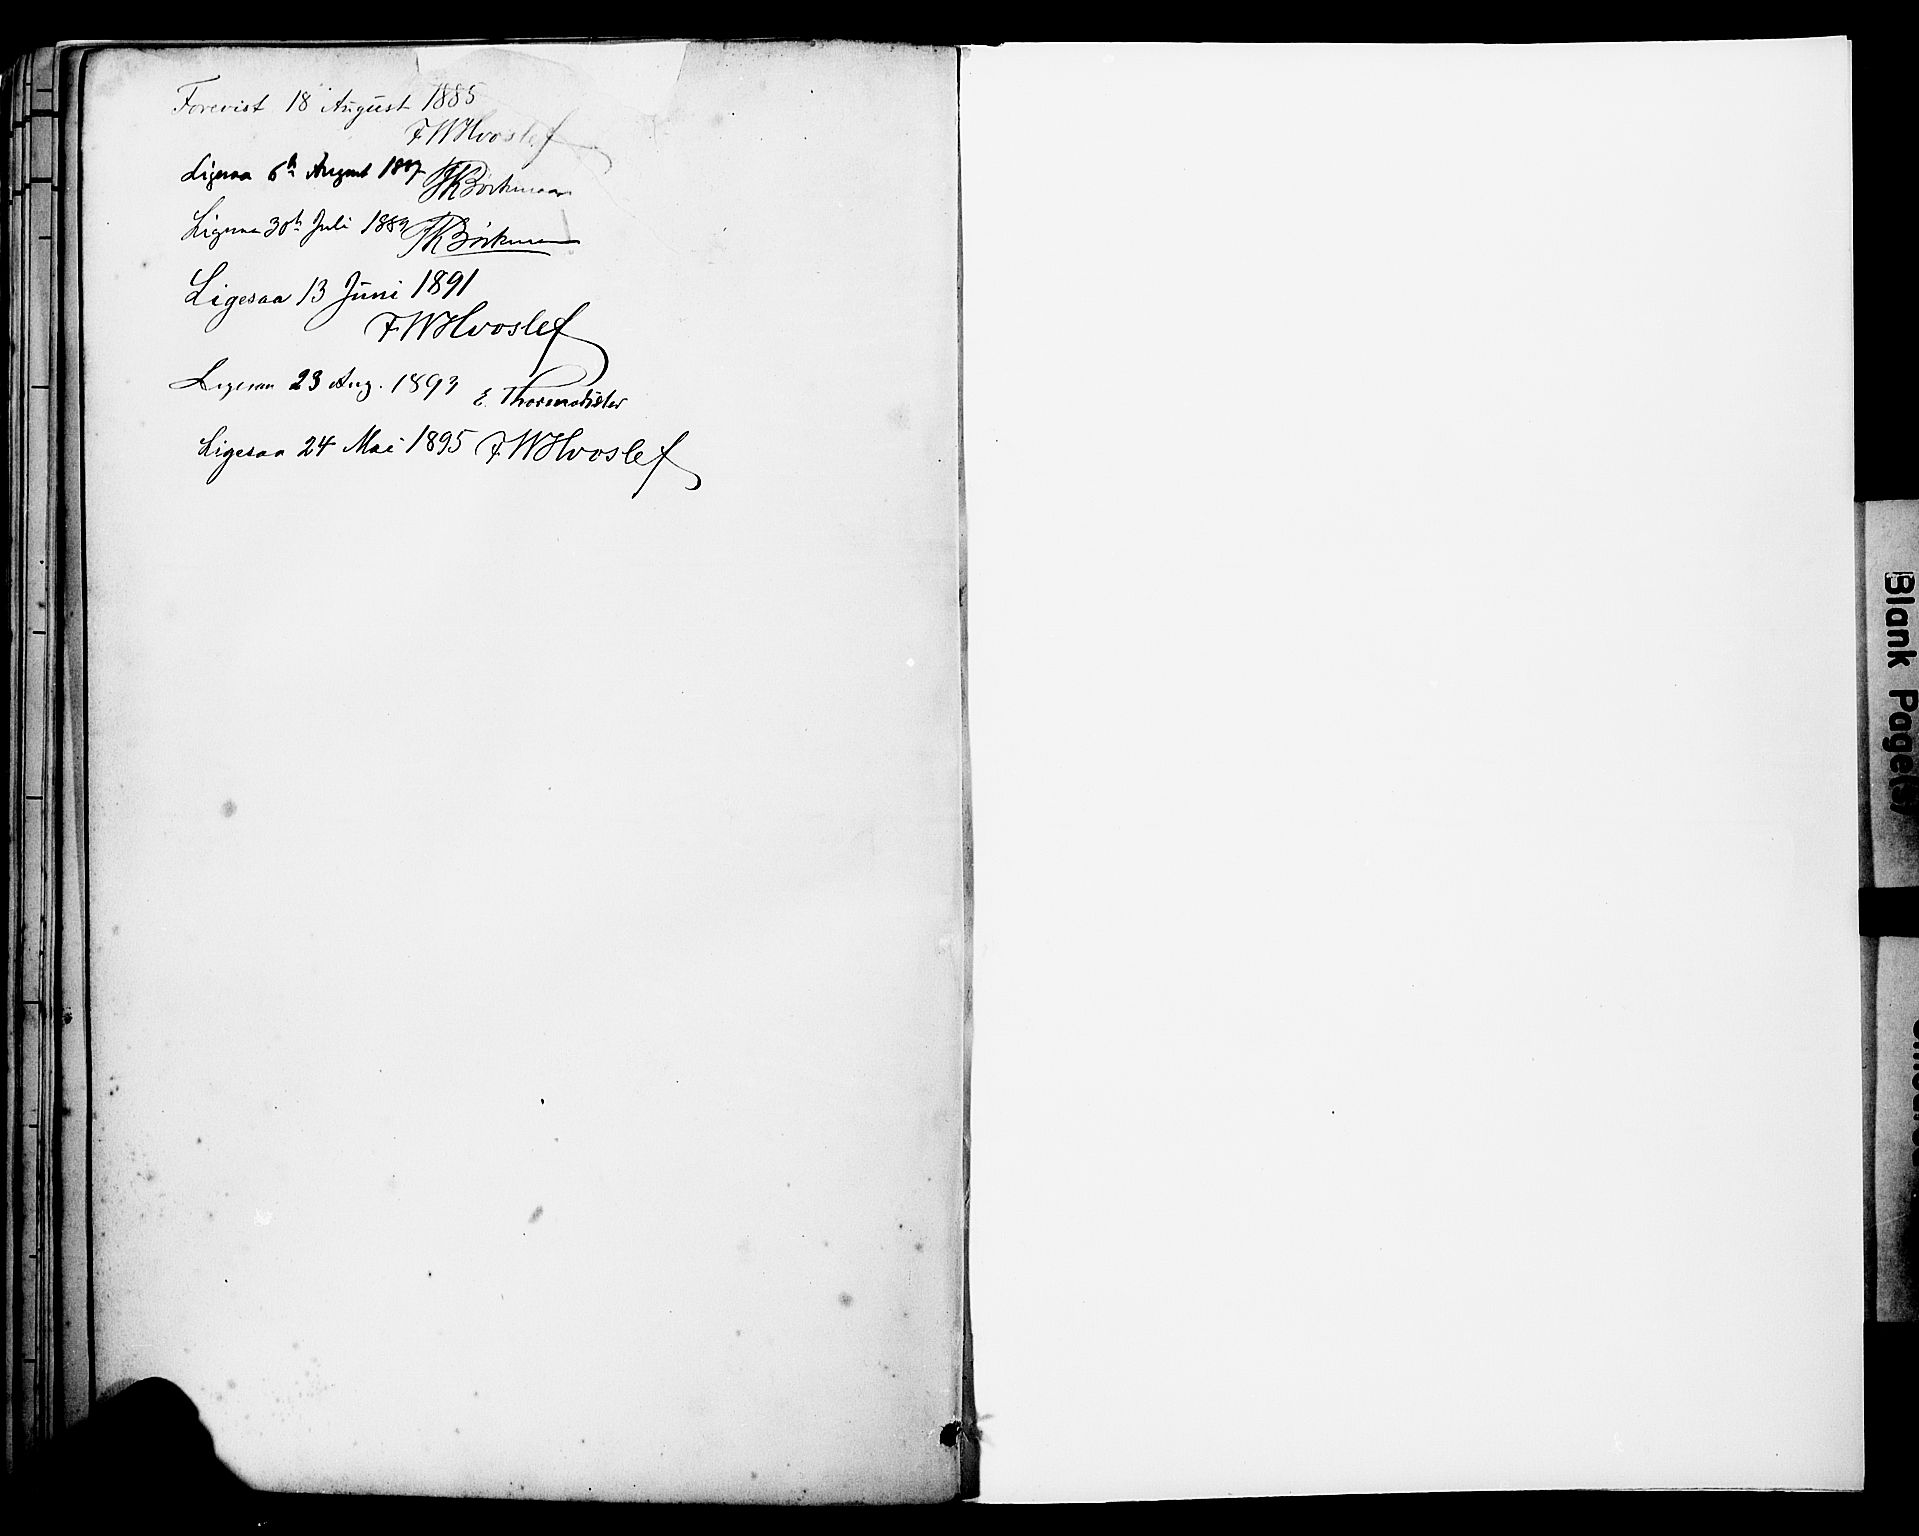 Forevist 18 August 1885
F.W Hvoslef
Ligesaa 6te August 1887 JKBöckman
Ligesaa 30te Juli 1889 JKBöckman
Ligesaa 13 Juni 1891
F.W Hvoslef
Ligesaa 23 Aug. 1893
E.
Ligesaa 24 Mai 1895 F.W Hvoslef
Blank Page(s)